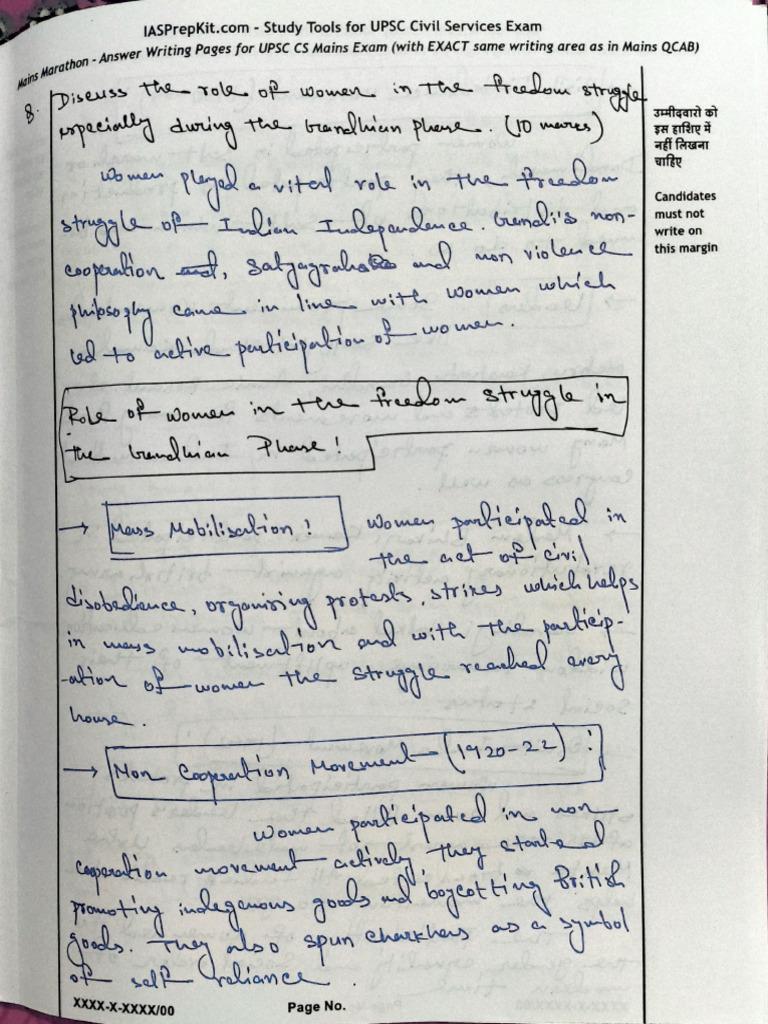 IASPrepKit.com - Study Tools for UPSC Civil Services Exam
Mains Marathon - Answer Writing Pages for UPSC CS Mains Exam (with EXACT same writing area as in Mains QCAB)
8. Discuss the role of women in the freedom struggle
especially during the Gandhian phase. (10 marks)
Women played a vital role in the freedom
struggle of Indian Independence. Gandi's non-
cooperation and, Satyagraha and non violence
philosophy came in line with women which
led to active participation of women.
Role of women in the freedom struggle in
the Gandhian Phase!
→ Mass Mobilisation! Women participated in
the act of civil
disobedience, organising protests, strikes which helps
in mass mobilisation and with the particip-
-ation of women the struggle reached every
house.
→ Non Cooperation Movement - (1920-22):
Women participated in non
cooperation movement actively, they started
promoting indegenous goods and boycotting British
goods. They also spun charkhas as a symbol
of self reliance.
उम्मीदवारो को
इस हाशिए में
नहीं लिखना
चाहिए
Candidates
must not
write on
this margin
XXXX-X-XXXX/00
Page No.